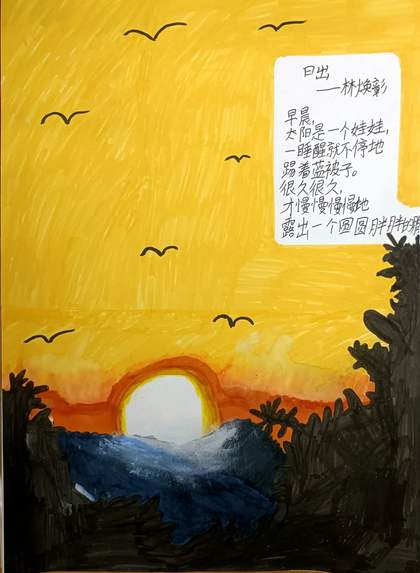 日出
——林焕彰
早晨，
太阳是一个娃娃，
一睡醒就不停地
踢着蓝被子。
很久很久，
才慢慢慢慢地
露出一个圆圆胖胖的